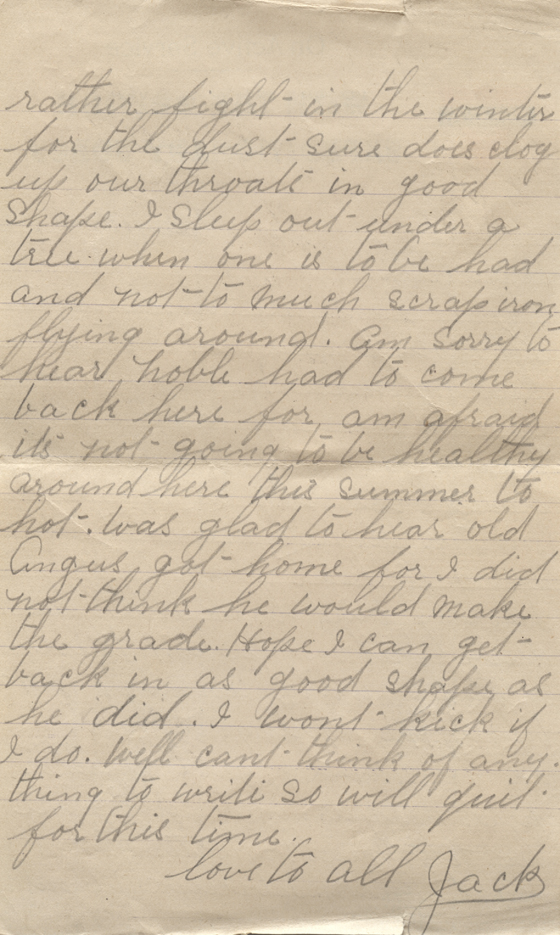 rather fight in the winter
for the dust sure does clog
up our throats in good
shape. I sleep out under a
tree when one is to be had
and not to much scrap iron
flying around. Am sorry to
hear noble had to come
back here for am afraid
its not going to be healthy
around here this summer to
hot. Was glad to hear old
Angus got home for I did
not think he would make
the grade. Hope I can get
back in as good shape as
he did. I wont kick if
I do. Well cant think of any.
thing to write so will quit
for this time.
love to all Jack